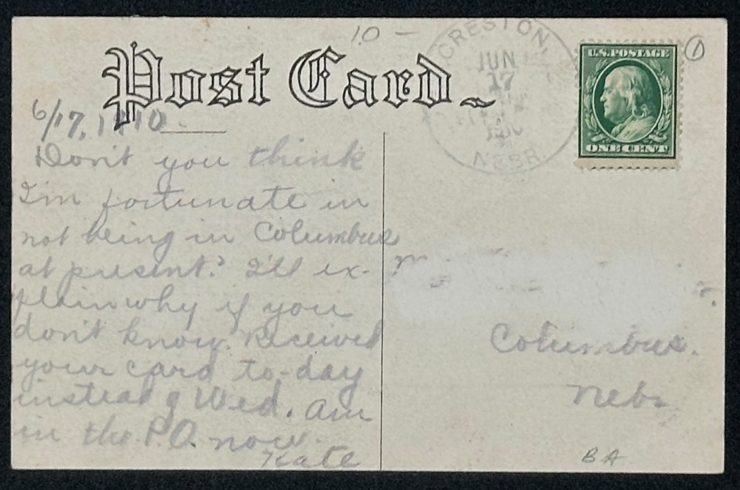 10 –
CRESTON,
JUN
17
NEBR
U.S. POSTAGE
ONE CENT
1
Post Card
6/17, 1910
Don't you think
I'm fortunate in
not being in Columbus
at present? I'll ex-
plain why if you
don't know. Received
your card to-day
instead of Wed. Am
in the P.O. now.
Kate
Columbus.
Nebr
BA